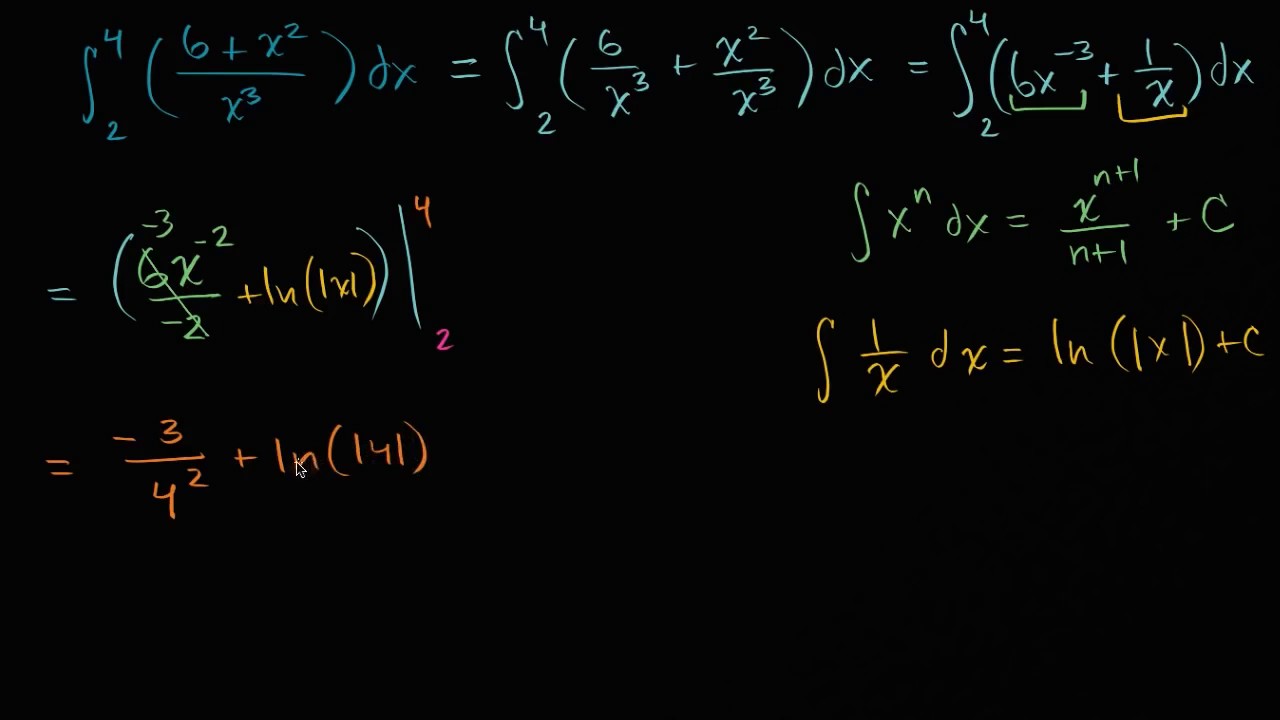 ∫₂⁴ ((6 + x²)/x³) dx = ∫₂⁴ (6/x³ + x²/x³) dx = ∫₂⁴ (6x⁻³ + 1/x) dx
∫ xⁿ dx = xⁿ⁺¹/(n+1) + C
= (-3 6x⁻²/-2 + ln(|x|)) |₂⁴
∫ 1/x dx = ln(|x|) + C
= -3/4² + ln(|4|)